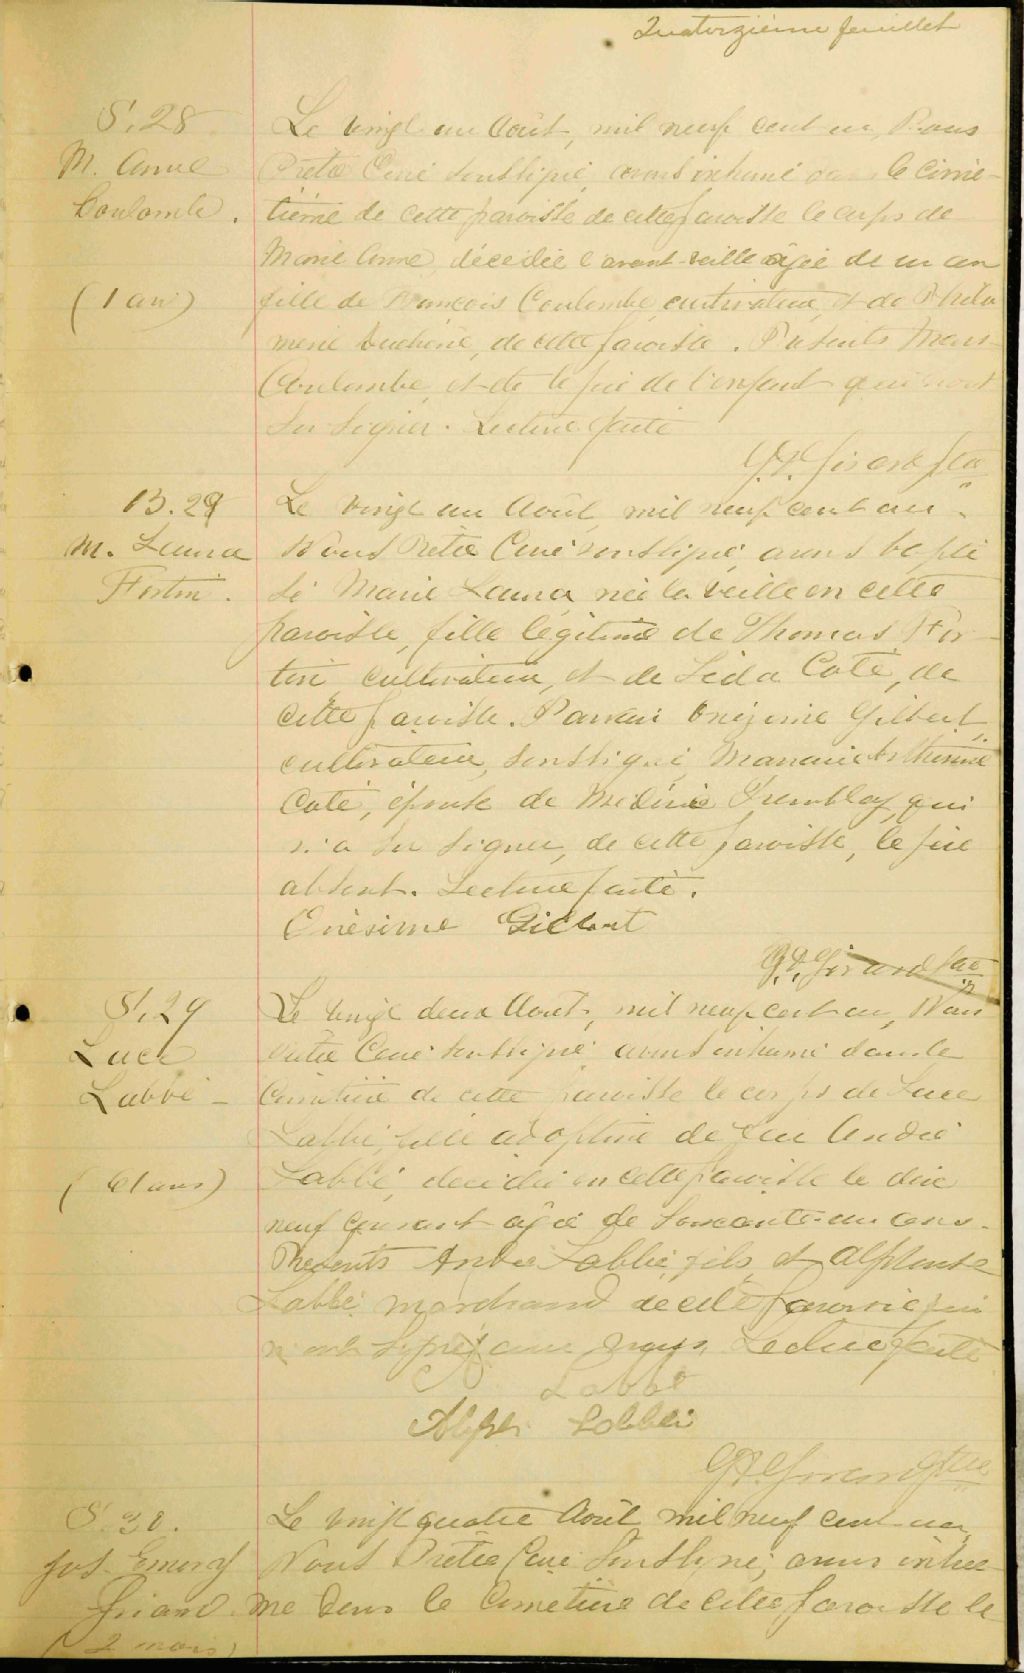 Quatorzième feuillet
S. 28
M. Anne
Coulombe.
(1 an)
Le vingt un Août, mil neuf cent un, Nous
Prêtre Curé soussigné, avons inhumé dans le cime-
tière de cette paroisse de cette paroisse le corps de
Marie Anne, décédée l'avant-veille âgée de un an
fille de François Coulombe, cultivateur, et de Philo
mène Duchène, de cette paroisse. Présents
Coulombe, et de le père de l'enfant qui n'ont
su signer. Lecture faite
Girard ptre
B. 29
M. Laura
Fortin.
Le vingt un Août, mil neuf cent un.
Nous Prêtre Curé soussigné, avons bapti
sé Marie Laura, née la veille en cette
paroisse, fille légitime de Thomas For-
tin cultivateur, et de Léda Coté, de
cette paroisse. Parrain Onézime Gilbert,
cultivateur, soussigné, Marraine
Coté, épouse de Médéric Tremblay, qui
n'a su signer, de cette paroisse, le père
absent. Lecture faite.
Onésime Gilbert
Girard ptre
S. 29
Luce
Labbé -
(61 ans)
Le vingt deux Août, mil neuf cent un, Nous
Prêtre Curé soussigné avons inhumé dans le
Cimetière de cette paroisse le corps de Luce
Labbé, fille adoptive de feu André
Labbé, décédée en cette paroisse le dix
neuf courant âgée de soixante-un ans.
Présents André Labbé, fils et Alphonse
Labbé marchand de cette paroisse qui
ont signé avec nous, Lecture faite
Labbé
Labbé
Girard Ptre
S. 30.
Jos. Emery
Girard
(2 mois)
Le vingt quatre Août mil neuf cent un,
Nous Prêtre Curé Soussigné, avons inhu-
mé dans le Cimetière de cette paroisse le